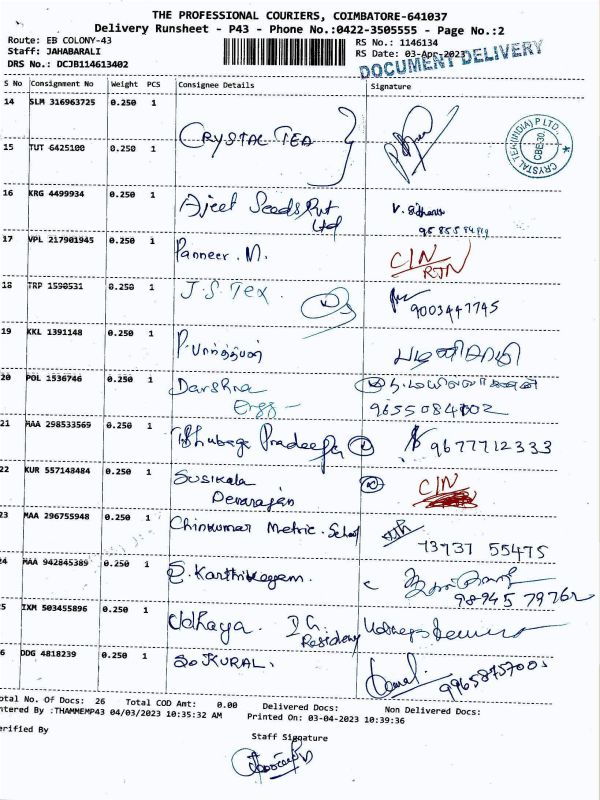 THE PROFESSIONAL COURIERS, COIMBATORE-641037
Delivery Runsheet - P43 - Phone No.:0422-3505555 - Page No.:2
Route: EB COLONY-43 RS No.: 1146134
Staff: JAHABARALI RS Date: 03-Apr-2023
DRS No.: DCJB114613402 DOCUMENT DELIVERY
S No Consignment No Weight PCS Consignee Details Signature
14 SLM 316963725 0.250 1
CRYSTAL TEA
15 TUT 6425100 0.250 1
CRYSTAL TEA (INDIA) P LTD. CBE-30. *
16 KRG 4499934 0.250 1 Ajeet Seeds Pvt Ltd
17 VPL 217901945 0.250 1 Panneer. M. CIN RTN
18 TRP 1590531 0.250 1 J.S. Tex 9003447745
19 KKL 1391148 0.250 1
20 POL 1536746 0.250 1 Darshna Engg - 9655084002
21 MAA 298533569 0.250 1 Pradeepa 9677712333
22 KUR 557148484 0.250 1 Susikala Devarajan CIN
23 MAA 296755948 0.250 1 Chinkumar Metric. School 73737 55475
24 MAA 942845389 0.250 1 S. Karthikeyan. 98945 79762
25 IXM 503455896 0.250 1 Udhaya. Residency
26 DDG 4818239 0.250 1 KURAL. 9965875700
Total No. Of Docs: 26 Total COD Amt: 0.00 Delivered Docs: Non Delivered Docs:
Entered By :THAMMEMP43 04/03/2023 10:35:32 AM Printed On: 03-04-2023 10:39:36
Verified By Staff Signature